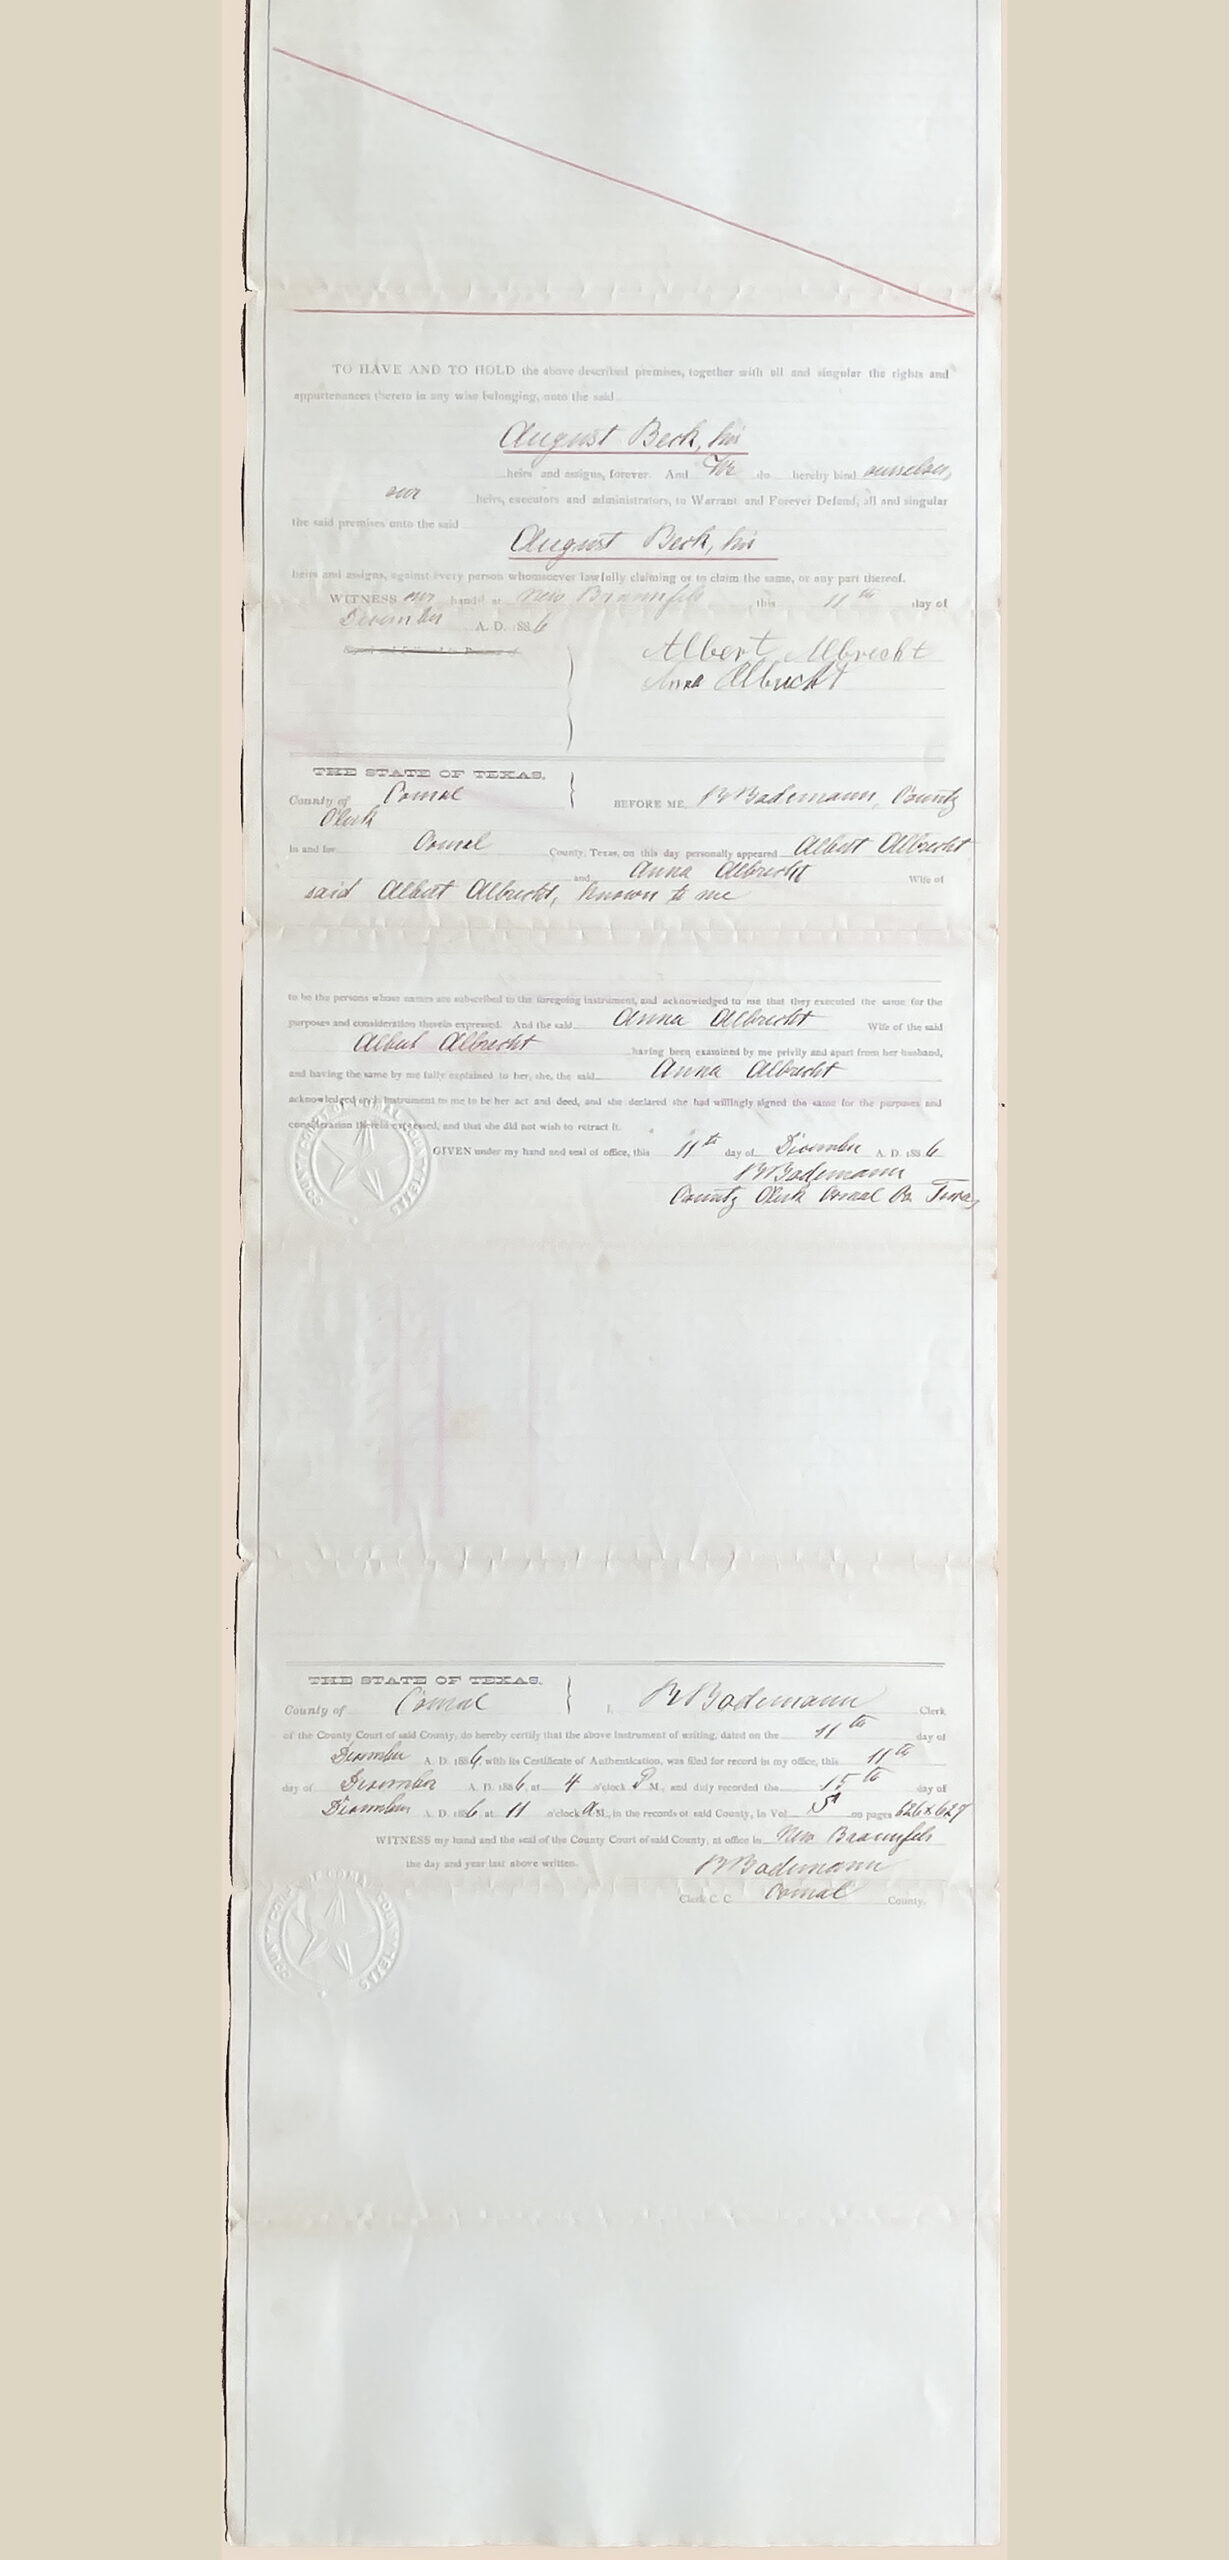 TO HAVE AND TO HOLD the above described premises, together with all and singular the rights and
appurtenances thereto in any wise belonging, unto the said
August Beck, his
heirs and assigns, forever. And We do hereby bind ourselves,
our heirs, executors and administrators, to Warrant and Forever Defend, all and singular
the said premises unto the said
August Beck, his
heirs and assigns, against every person whomsoever lawfully claiming or to claim the same, or any part thereof.
WITNESS our hands at New Braunfels this 11th day of
December A. D. 1886
Albert Albrecht
Anna Albrecht
THE STATE OF TEXAS,
County of Comal BEFORE ME, Bodemann, County
Clerk
in and for Comal County, Texas, on this day personally appeared Albert Albrecht
and Anna Albrecht Wife of
said Albert Albrecht, known to me
to be the persons whose names are subscribed to the foregoing instrument, and acknowledged to me that they executed the same for the
purposes and consideration therein expressed. And the said Anna Albrecht Wife of the said
Albert Albrecht having been examined by me privily and apart from her husband,
and having the same by me fully explained to her, she, the said Anna Albrecht
acknowledged such instrument to me to be her act and deed, and she declared she had willingly signed the same for the purposes and
consideration therein expressed, and that she did not wish to retract it.
GIVEN under my hand and seal of office, this 11th day of December A. D. 1886
Bodemann
County Clerk Comal Co Texas
THE STATE OF TEXAS,
County of Comal I, Bodemann Clerk
of the County Court of said County, do hereby certify that the above instrument of writing, dated on the 11th day of
December A. D. 1886, with its Certificate of Authentication, was filed for record in my office, this 11th
day of December A. D. 1886, at 4 o'clock P M., and duly recorded the 15th day of
December A. D. 1886 at 11 o'clock A M., in the records of said County, in Vol on pages 626 & 627
WITNESS my hand and the seal of the County Court of said County, at office in New Braunfels
the day and year last above written.
Bodemann
Clerk C. C. Comal County.